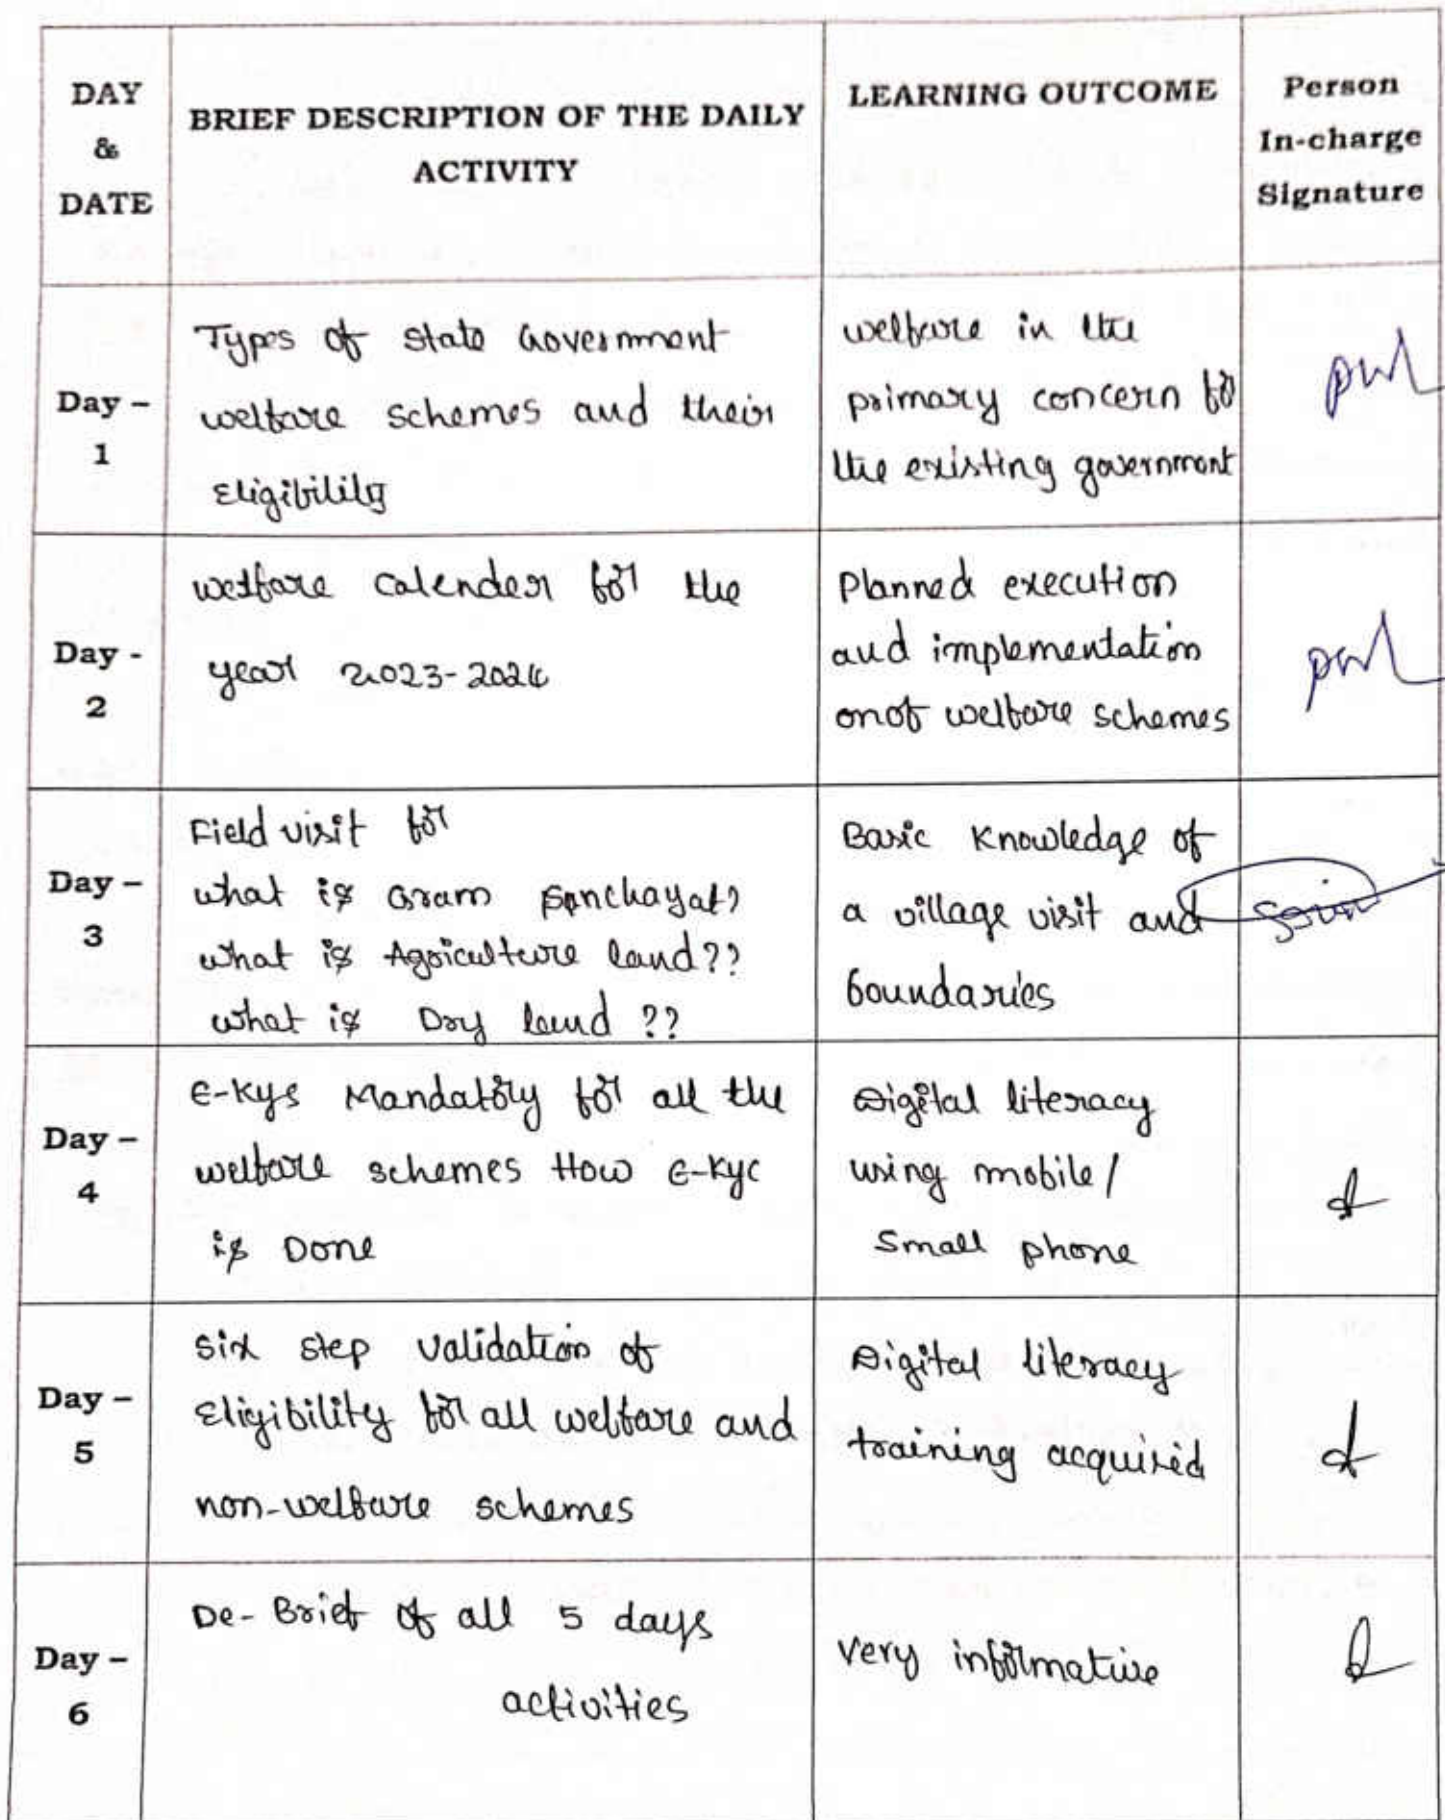 DAY
&
DATE
BRIEF DESCRIPTION OF THE DAILY
ACTIVITY
LEARNING OUTCOME
Person
In-charge
Signature
Day –
1
Types of state Government
welfare schemes and their
Eligibility
welfare in the
primary concern for
the existing government
Day -
2
welfare calender for the
year 2023-2024
Planned execution
and implementation
onof welfare schemes
Day –
3
Field visit for
what is Gram panchayat?
what is Agriculture land??
what is Dry land ??
Basic Knowledge of
a village visit and
boundaries
Day –
4
E-Kys Mandatory for all the
welfare schemes How E-Kyc
is Done
Digital literacy
using mobile/
Small phone
Day –
5
six step validation of
Eligibility for all welfare and
non-welfare schemes
Digital literacy
training acquired
Day –
6
De-Brief of all 5 days
activities
very informative